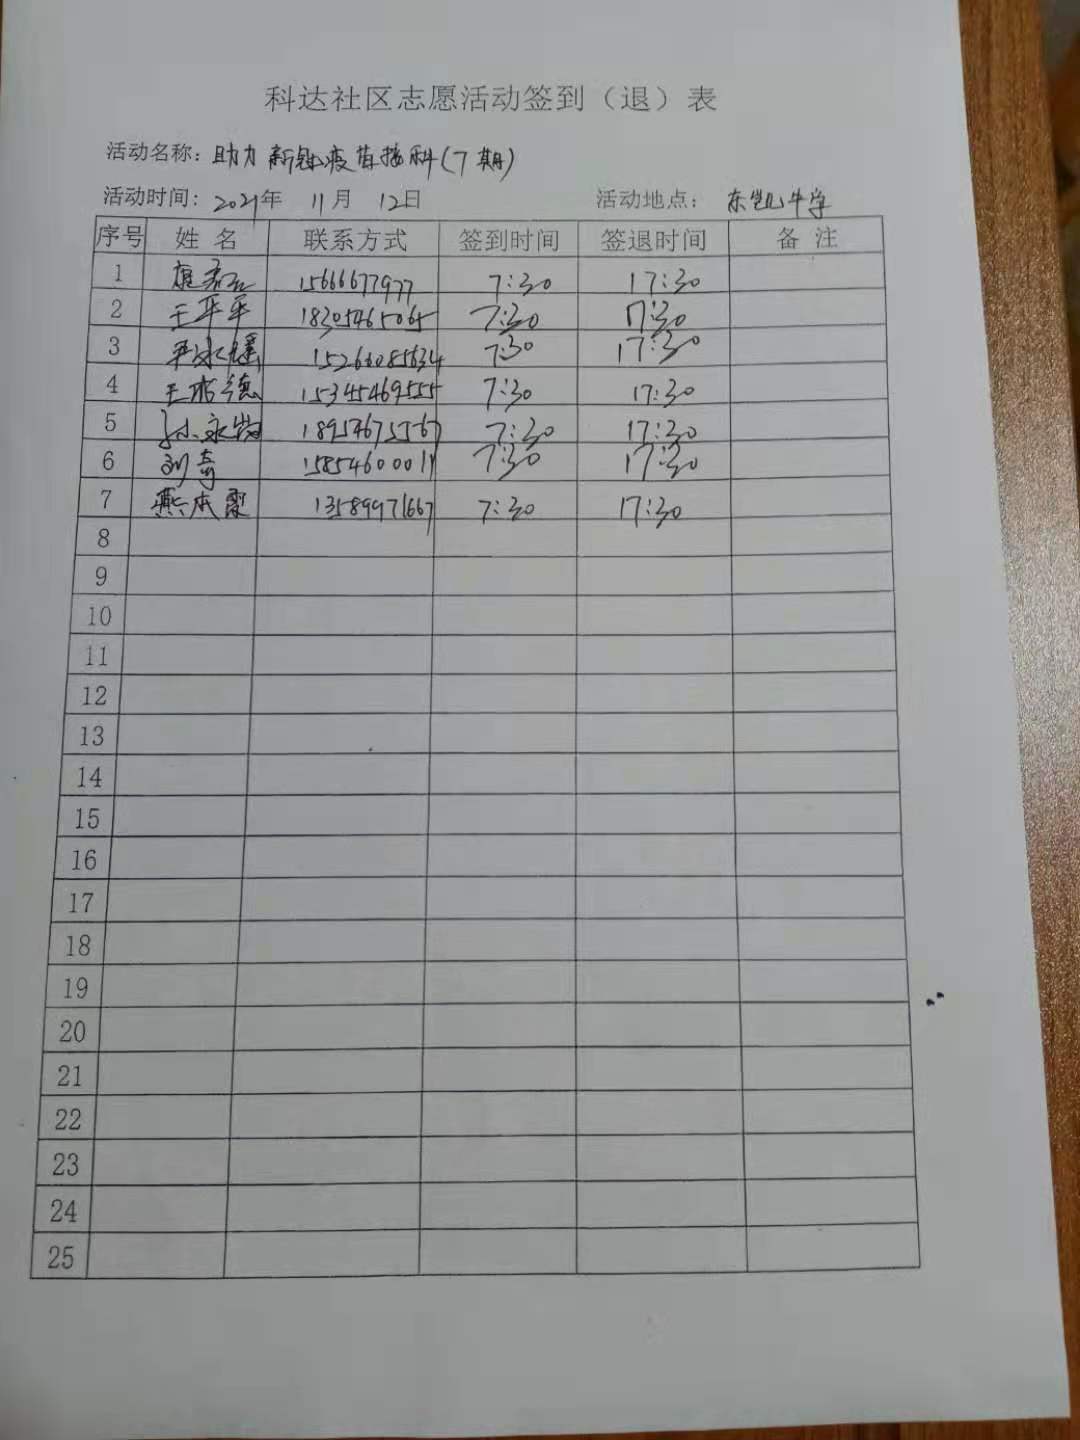 科达社区志愿活动签到（退）表
活动名称：助力新冠疫苗接种(7期)
活动时间：2021年 11月 12日 活动地点：东凯中学
序号 姓名 联系方式 签到时间 签退时间 备注
1 15666677977 7:30 17:30
2 王平平 18305465065 7:30 17:30
3 15266085634 7:30 17:30
4 15345469555 7:30 17:30
5 18954675567 7:30 17:30
6 刘奇 15854600011 7:30 17:30
7 燕本梨 13589971667 7:30 17:30
8
9
10
11
12
13
14
15
16
17
18
19
20
21
22
23
24
25